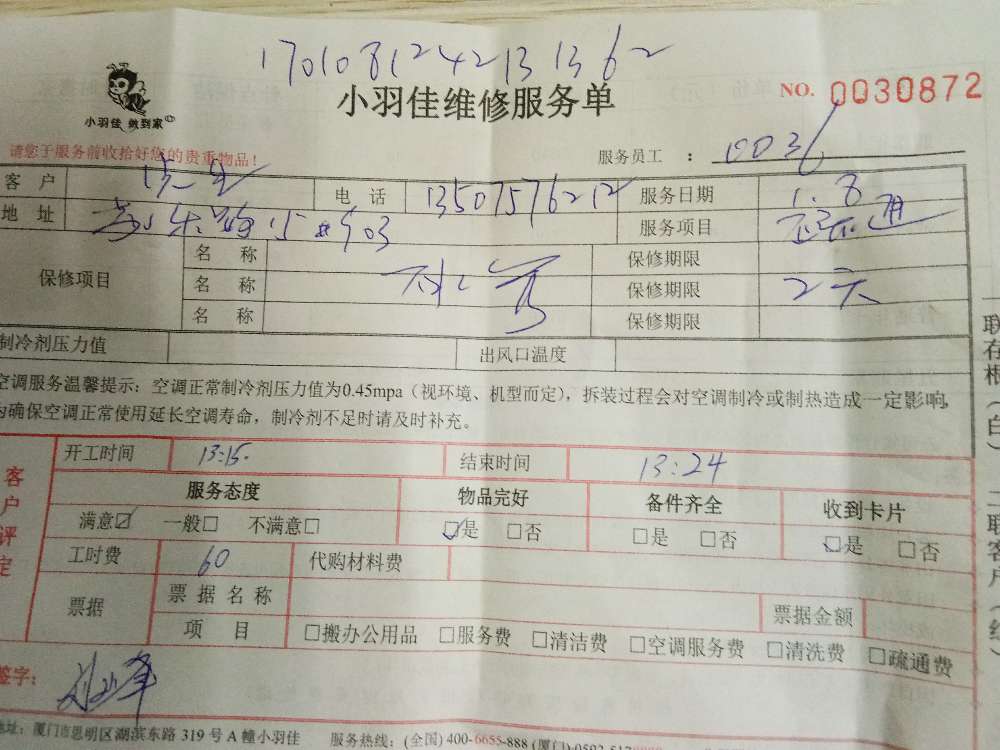 1701081242131362
小羽佳 做到家
小羽佳维修服务单
NO. 0030872
请您于服务前收拾好您的贵重物品！
服务员工 ： 0036
客 户 电 话 13507576212 服务日期 1.8
地 址 服务项目
保修项目 名 称 保修期限
名 称 保修期限 2天
名 称 保修期限
制冷剂压力值 出风口温度
空调服务温馨提示：空调正常制冷剂压力值为0.45mpa（视环境、机型而定），拆装过程会对空调制冷或制热造成一定影响，
为确保空调正常使用延长空调寿命，制冷剂不足时请及时补充。
客户评定
开工时间 13:15 结束时间 13:24
服务态度 物品完好 备件齐全 收到卡片
满意☑ 一般□ 不满意□ ☑是 □否 □是 □否 ☑是 □否
工时费 60 代购材料费
票据 票据名称 票据金额
项 目 □搬办公用品 □服务费 □清洁费 □空调服务费 □清洗费 □疏通费
签字：
地址：厦门市思明区湖滨东路 319 号 A 幢小羽佳 服务热线：(全国) 400-6655-888 (厦门) 0592-517
一联存根（白） 二联客户（红）